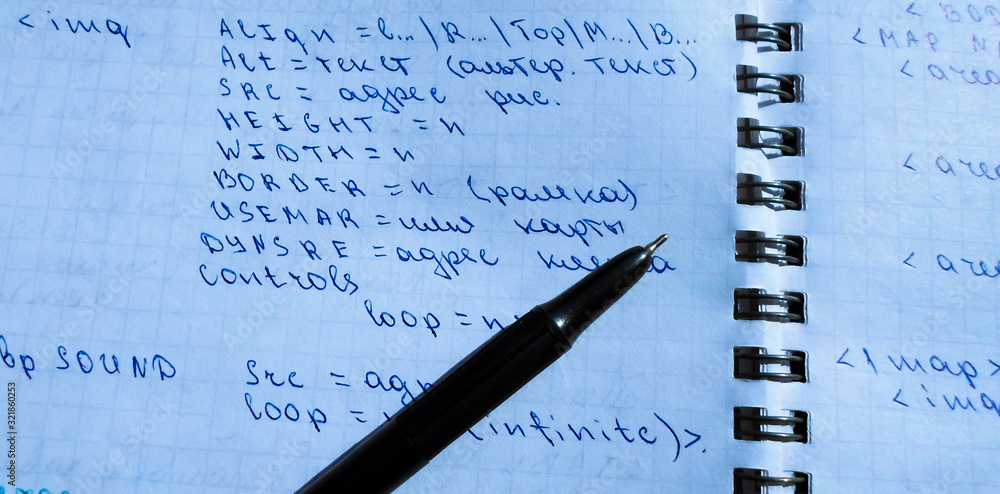 <img ALIGN = l...|R...|Top|M...|B...
Alt = текст (альтер. текст)
SRC = адрес рис.
HEIGHT = n
WIDTH = n
BORDER = n (рамка)
USEMAR = имя карты
DYNSRE = адрес
controls
loop = n
SOUND Src =
loop = (infinite)>.
<MAP
<area
<area
<area
</map>
<img
Adobe Stock | #321860253